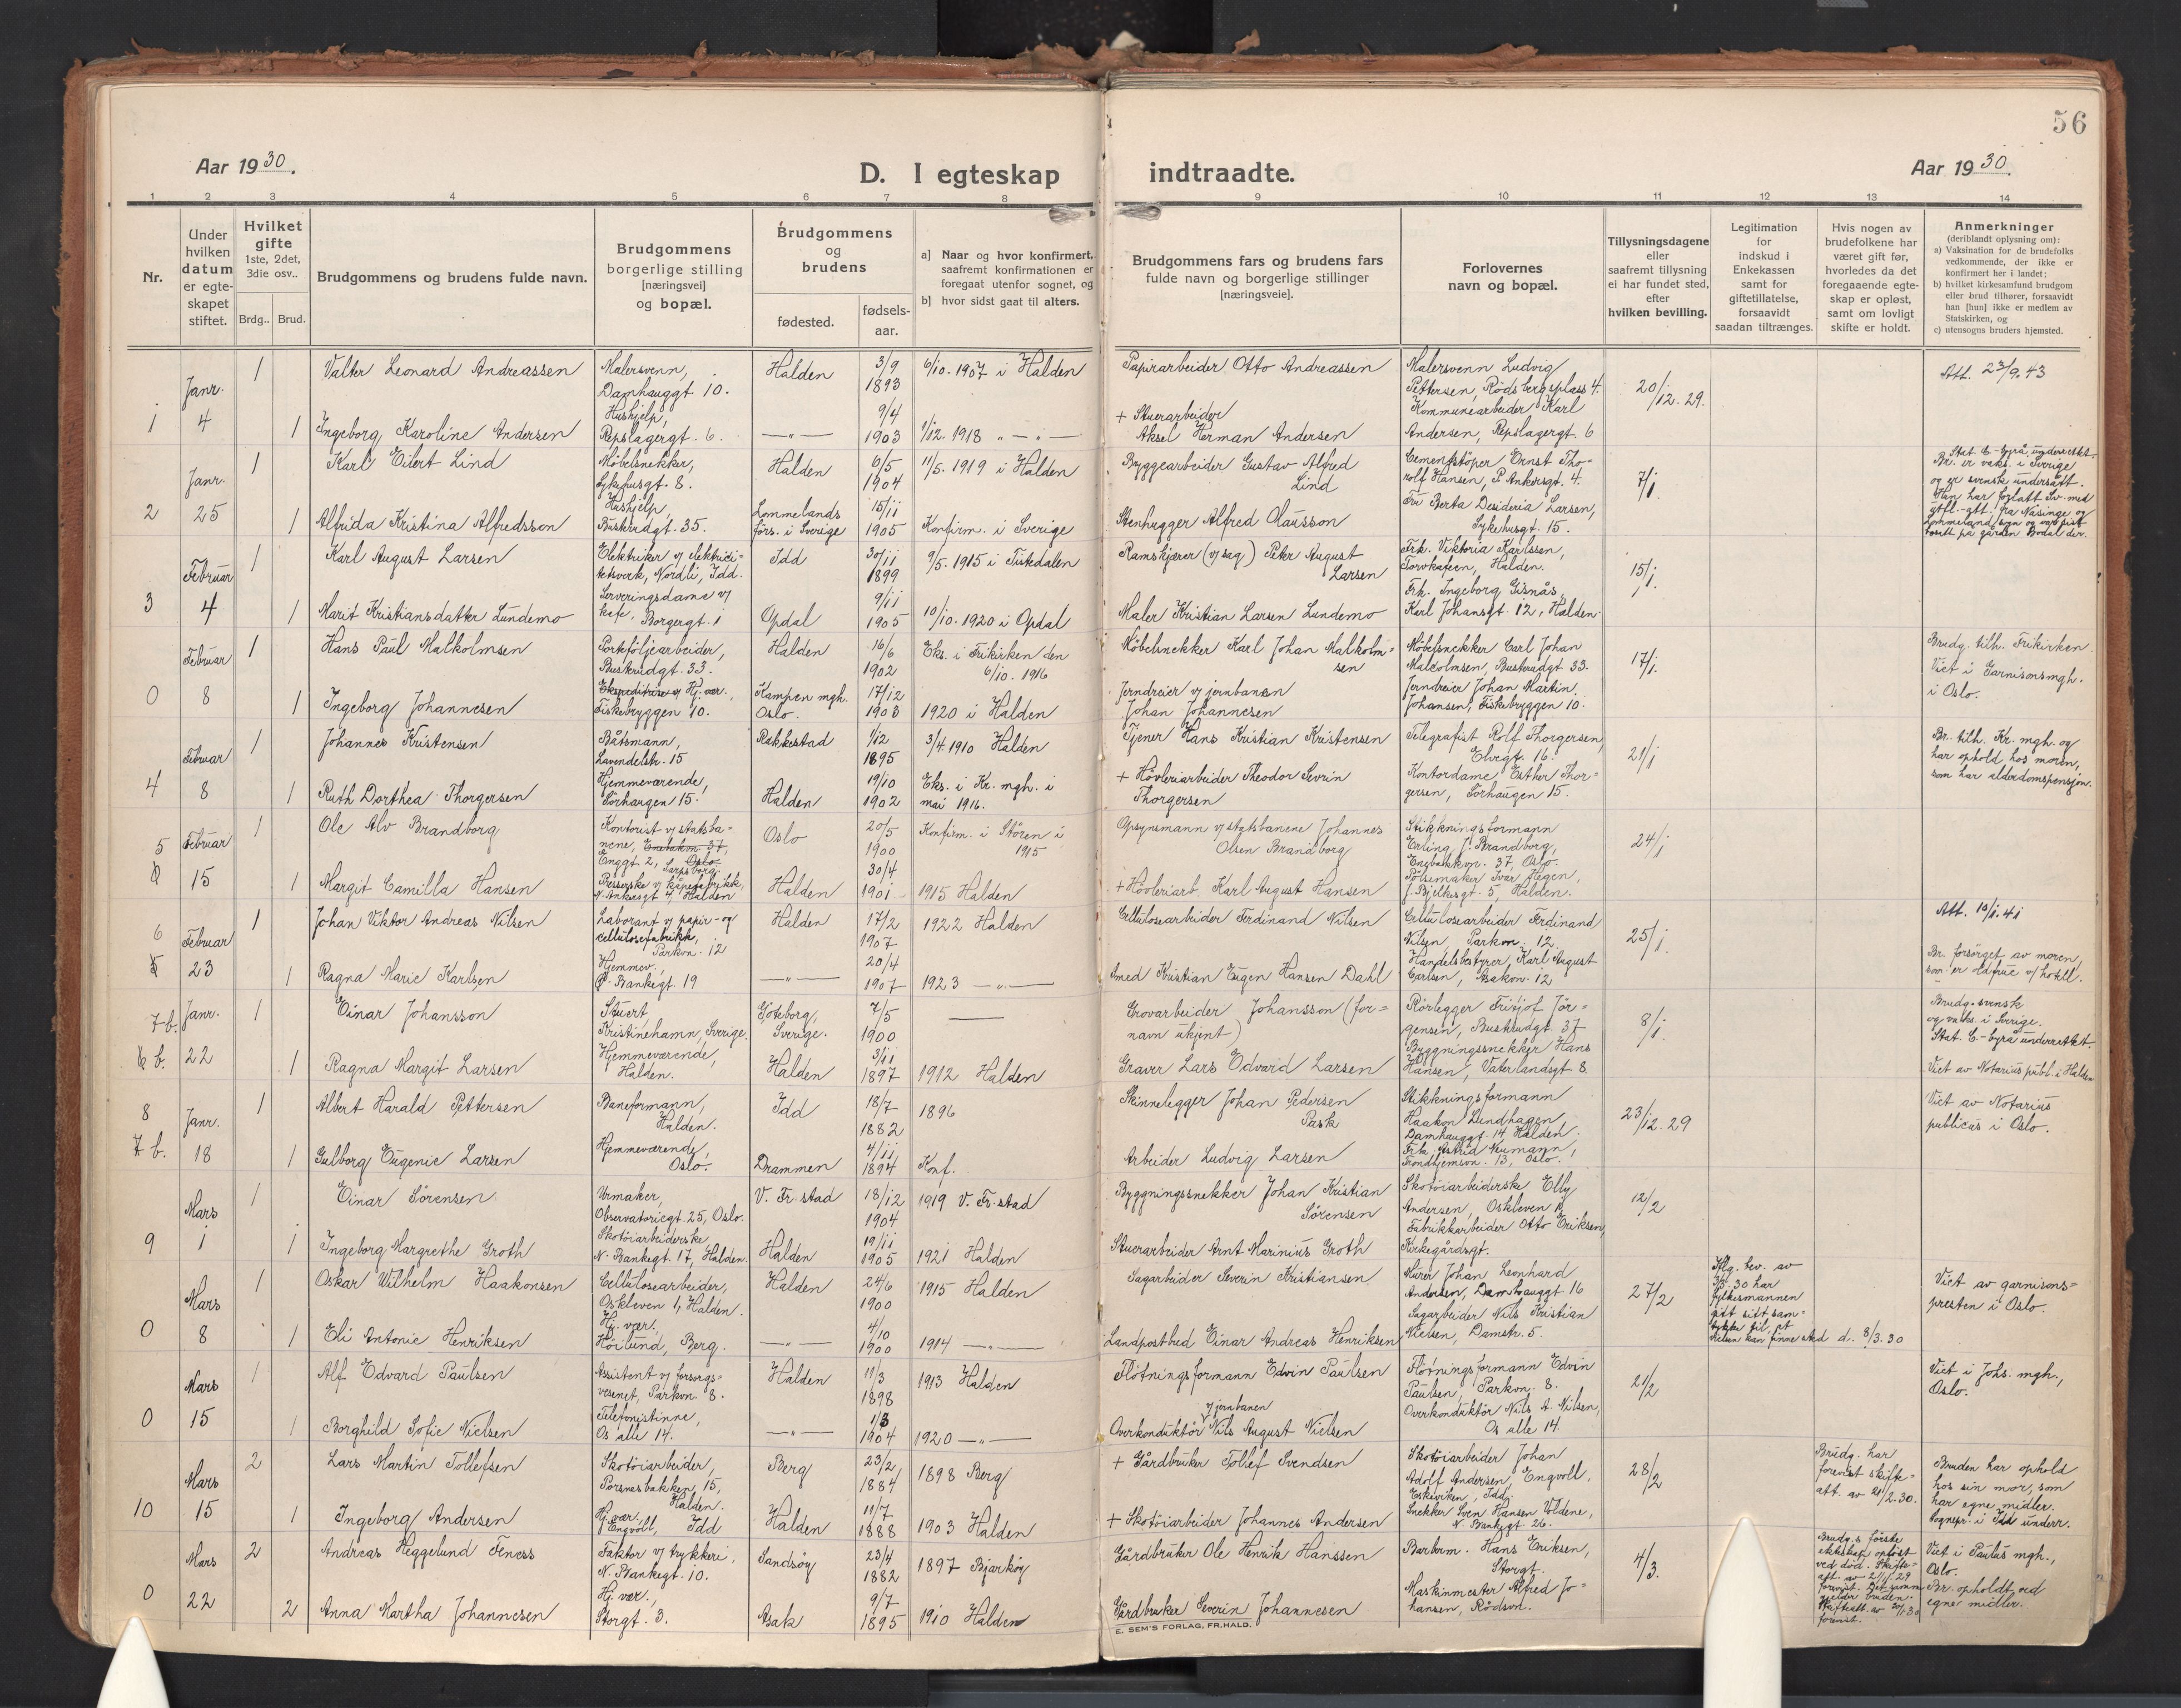 56
Aar 1930.
D. I egteskap indtraadte.
Aar 1930.
1 2 3 4 5 6 7 8 9 10 11 12 13 14
Nr.
Under hvilken datum er egte-skapet stiftet.
Hvilket gifte 1ste, 2det, 3die osv..
Brdg.. Brud.
Brudgommens og brudens fulde navn.
Brudgommens borgerlige stilling [næringsvei] og bopæl.
Brudgommens og brudens
fødested.
fødsels-aar.
a] Naar og hvor konfirmert, saafremt konfirmationen er foregaat utenfor sognet, og
b] hvor sidst gaat til alters.
Brudgommens fars og brudens fars fulde navn og borgerlige stillinger [næringsveie].
Forlovernes navn og bopæl.
Tillysningsdagene eller saafremt tillysning ei har fundet sted, efter hvilken bevilling.
Legitimation for indskud i Enkekassen samt for giftetillatelse, forsaavidt saadan tiltrænges.
Hvis nogen av brudefolkene har været gift før, hvorledes da det foregaaende egte-skap er opløst, samt om lovligt skifte er holdt.
Anmerkninger
(deriblandt oplysning om):
a) Vaksination for de brudefolks vedkommende, der ikke er konfirmert her i landet;
b) hvilket kirkesamfund brudgom eller brud tilhører, forsaavidt han [hun] ikke er medlem av Statskirken, og
c) utensogns bruders hjemsted.
1 Janr. 4
1 Valter Leonard Andreassen
Malersvenn, Damhauggt 10.
Halden 3/9 1893
6/10. 1907 i Halden
Papirarbeider Otto Andreassen
Malersvenn Ludvig Pettersen, Rødsbergsplass 4.
20/12. 29.
Att. 23/9. 43
1 Ingeborg Karoline Andersen
Hushjelp, Repslagergt. 6.
—"— 9/4 1903
1/12. 1918 "—"—
+ Stuerarbeider Aksel Herman Andersen
Kommunearbeider Karl Andersen, Repslagergt. 6
2 Janr. 25
1 Karl Eilert Lind
Møbelsnekker, Sykehusgt. 8.
Halden 6/5 1904
11/5. 1919 i Halden
Byggearbeider Gustav Alfred Lind
Cementstøper Ernst Tho-rolf Hansen, P. Ankersgt. 4.
7/1.
Stat. C-byrå underrettet.
Br. er vaks. i Sverige og er svensk undersått.
1 Alfrida Kristina Alfredsson
Hushjelp, Buskrudgt. 35.
Lommelands förs. i Sverige 15/11 1905
Konfirm. i Sverige
Stenhugger Alfred Olausson
Fru Berta Desideria Larsen, Sykehusgt. 15.
3 Februar 4
1 Karl August Larsen
Elektriker v/ elektrici-tetsverk, Nordli, Idd.
Idd 30/11 1899
9/5. 1915 i Tistedalen
Ramskjærer (v/ sag) Peter August Larsen
Frk. Viktoria Karlssen, Torvkafeen, Halden.
15/1.
1 Marit Kristiansdatter Lundemo
Serveringsdame v/ kafe, Borgergt. 1
Opdal 9/11 1905
10/10. 1920 i Opdal
Maler Kristian Larsen Lundemo
Frk. Ingeborg Gisnås, Karl Johansgt. 12, Halden.
0 Februar 8
1 Hans Paul Malkolmsen
Porteføljearbeider, Buskrudgt. 33.
Halden 16/6 1902
Eks. i Frikirken den 6/10. 1916
Møbelsnekker Karl Johan Malkolm=sen
Møbelsnekker Carl Johan Malcolmsen, Buskrudgt 33.
17/1.
Brudg. tilh. Frikirken.
Viet i Garnisonsmgh. i Oslo.
1 Ingeborg Johannesen
Ekspeditrise v/ Hj.vær., Fiskebryggen 10.
Kampen mgh. Oslo. 17/12 1903
1920 i Halden
Jerndreier v/ jernbanen Johan Johannesen
Jerndreier Johan Martin Johansen, Fiskebryggen 10.
4 Februar 8
1 Johannes Kristensen
Båtsmann, Lavendelstr. 15
Rakkestad 1/12 1895
3/4 1910 Halden
Tjener Hans Kristian Kristensen
Telegrafist Rolf Thorgersen, Ebrgt. 16.
21/1
Br. tilh. Kr. mgh. og har ophold hos moren, som har alderdomspensjon.
1 Ruth Dorthea Thorgersen
Hjemmeværende, Sørhaugen 15.
Halden 19/10 1902
Eks. i Kr. mgh. i mai 1916.
+ Høvleriarbeider Theodor Sevrin Thorgersen
Kontordame Esther Thor=gersen, Sørhaugen 15.
5 Februar 15
1 Ole Alv Brandborg
Kontorist v/ statsba=nene, Enebakkvn 37, Oslo. Enggt 2, Sarpsborg.
Oslo 20/5 1900
Konfirm. i Støren i 1915
Opsynsmann v/ statsbanene Johannes Olsen Brandborg
Stikkningsformann Erling J. Brandborg, Engbakkvn. 37, Oslo.
24/1
1 Margit Camilla Hansen
Presserske v/ kåpefabrikk, N. Ankersgt 7, Halden
Halden 30/4 1901
1915 Halden
+ Høvleriarb. Karl August Hansen
Pølsemaker Ivar Hagen, J. Bjelkesgt. 5, Halden.
6 Februar 23
1 Johan Viktor Andreas Nilsen
Laborant v/ papir- og cellulosefabrikk, Parkvn. 12
Halden 17/2 1907
1922 Halden
Cellulosearbeider Ferdinand Nilsen
Cellulosearbeider Ferdinand Nilsen, Parkvn. 12.
25/1.
Att. 10/1. 41
1 Ragna Marie Karlsen
Hjemmev., Ø. Bankegt. 19
—"— 20/4 1907
1923 —"—
Smed Kristian Eugen Hansen Dahl
Handelsbestyrer Karl August Carlsen, Asakvn. 12
Br. forsørget av moren, som er oldfrue v/ hotell.
7 b. Janr. 22
1 Einar Johansson
Stuert, Kristinehamn, Sverige.
Göteborg, Sverige. 7/5 1900
———
Grovarbeider Johansson (for=navn ukjent)
Rørlegger Fritjof Jør=gensen, Buskrudgt. 37
8/1.
Brudg. svensk og vaks. i Sverige.
Stat. C.-byrå underrettet.
Viet av Notarius publ. i Halden
6 b.
1 Ragna Margit Larsen
Hjemmeværende, Halden.
Halden 3/11 1897
1912 Halden
Graver Lars Edvard Larsen
Byggningssnekker Hans Hansen, Vaterlandsgt 8.
8 Janr. 18
1 Albert Harald Pettersen
Baneformann, Halden.
Idd 18/7 1882
1896
Skinnelegger Johan Pedersen Pask
Stikkningsformann Haakon Lundhagen, Damhauggt. 14 Halden.
23/12. 29
Viet av Notarius publicus i Oslo.
7 b.
1 Gulborg Eugenie Larsen
Hjemmeværende, Oslo.
Drammen 4/11 1894
Konf.
Arbeider Ludvig Larsen
Frk. Astrid Neumann, Trondhjemsvn. 13, Oslo.
9 Mars 1
1 Einar Sørensen
Urmaker, Observatoriegt. 25, Oslo.
V. Fr.stad 18/12 1904
1919 V. Fr.stad
Byggningssnekker Johan Kristian Sørensen
Skotøiarbeiderske Elly Andersen, Oskleven 1,
12/2
1 Ingeborg Margrethe Groth
Skotøiarbeiderske N. Bankegt. 17, Halden.
Halden 19/11 1905
1921 Halden
Stuerarbeider Arnt Marinius Groth
Fabrikkarbeider Otto Eriksen, Kirkegårdsgt.
0 Mars 8
1 Oskar Wilhelm Haakonsen
Cellulosearbeider, Oskleven 1, Halden.
Halden 24/6 1900
1915 Halden
Sagarbeider Severin Kristiansen
Murer Johan Leonhard Andersen, Damhauggt 16
27/2
Viet av garnisons=presten i Oslo.
1 Eli Antonie Henriksen
Hj. vær., Høilund, Berg.
—"— 4/10 1900
1914 —"—
Landpostbud Einar Andreas Henriksen
Sagarbeider Nils Kristian Nielsen, Damstr. 5.
vielsen kan finne sted d. 8/3. 30
0 Mars 15
1 Alf Edvard Paulsen
Assistent v/ forsorgs=vesenet, Parkvn. 8.
Halden 11/3 1898
1913 Halden
Fløtningsformann Edvin Paulsen
Fløtningsformann Edvin Paulsen, Parkvn. 8.
21/2
Viet i Johs. mgh., Oslo.
1 Borghild Sofie Nielsen
Telefonistinne, Os alle 14.
—"— 1/3 1904
1920 —"—
Overkonduktør v/ jernbanen Nils August Nielsen
Overkonduktør Nils A. Nilsen, Os alle 14.
10 Mars 15
2 Lars Martin Tollefsen
Skotøiarbeider, Porsnesbakken 15, Halden.
Berg 23/2 1884
1898 Berg
+ Gårdbruker Tollef Svendsen
Skotøiarbeider Johan Adolf Andersen, Engvoll, Eskeviken, Idd.
28/2
Brudg. har forevist skifte=att. av 21/2. 30.
Bruden har ophold hos sin mor, som har egne midler. Sognepr. i Idd underr.
1 Ingeborg Andersen
Hj. vær., Engvoll, Idd
Halden 11/7 1888
1903 Halden
+ Skotøiarbeider Johannes Andersen
Snekker Sven Hansen Uldene, N. Bankegt 26.
0 Mars 22
2 Andreas Heggelund Feness
Faktor v/ trykkeri, N. Bankegt. 10.
Sandsøy 23/4 1882
1897 Bjarkøy
Gårdbruker Ole Henrik Hanssen
Barberm. Hans Eriksen, Storgt.
4/3.
Brudg.s første ekteskap opløst ved død.
Viet i Paulus mgh., Oslo.
Br. opholdt ved egne midler.
2 Anna Martha Johannesen
Hj. vær., Storgt. 3.
Asak 9/7 1895
1910 Halden
Gårdbruker Severin Johannesen
Maskinmester Alfred Jo=hansen, Rødsvn.
E. SEM'S FORLAG, FR.HALD.